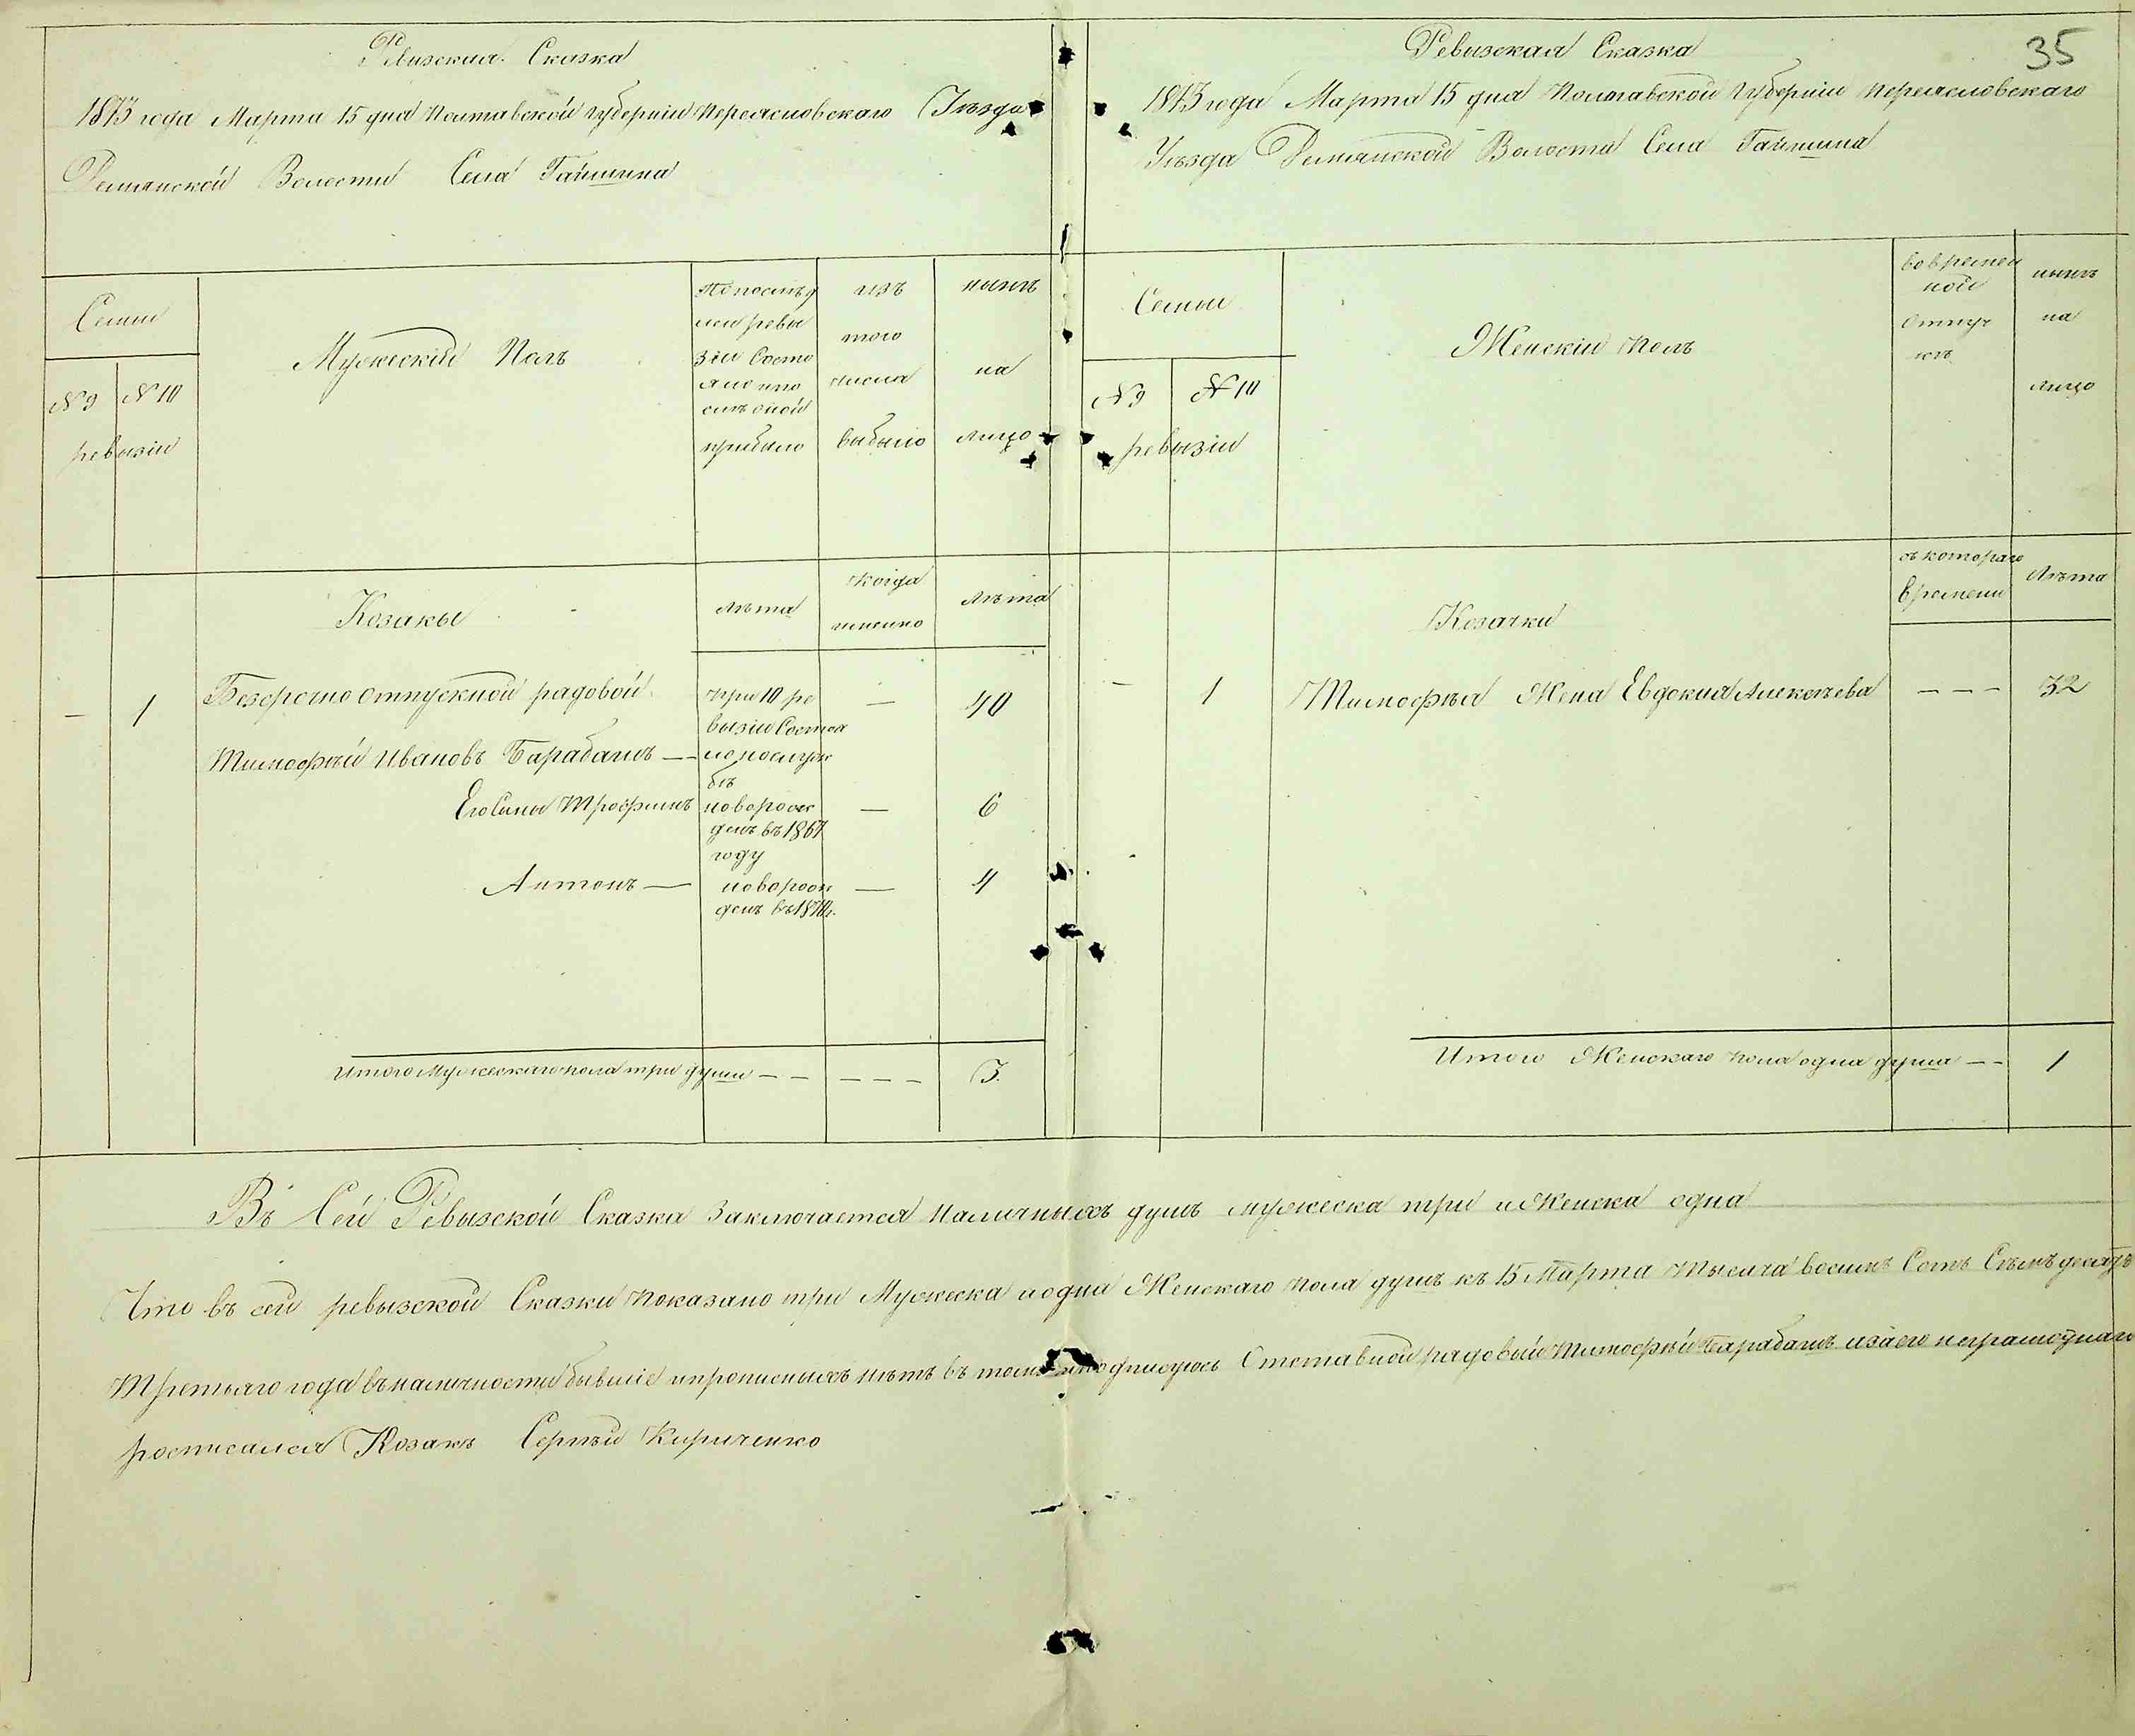 Ревизская Сказка
1873 года Марта 15 дня Полтавской губерніи Переясловскаго Уѣзда
Демянской Волости Села Гайшина
Семьи
№ 9
№ 10
ревызіи
Мужескій Полъ
По послѣд
ней ревы
зіи Состо
яло и по
слѣ оной
прибыло
изъ
того
числа
выбыло
нынѣ
на
лицо
Козакы
лѣта
когда
именно
лѣта
—
1
Безсрочно отпускной рядовой
Тимофѣй Ивановъ Барабашъ —
при 10 ре
вызіи Состоя
ло по служ
бѣ
—
40
Его Сыны Трофимъ
новорож
денъ въ 1867
году
—
6
Антонъ —
новорож
денъ въ 1870 г.
—
4
Итого Мужескаго пола три души — — — — —
3.
35
Ревизская Сказка
1873 года Марта 15 дня Полтавской Губерніи Переясловскаго
Уѣзда Демянской Волости Села Гайшина
Семьи
№ 9
№ 10
ревызіи
Женскій Полъ
во времен
ной
отлуч
кѣ
нынѣ
на
лицо
Козачки
съ котораго
времени
Лѣта
—
1
Тимофѣя Жена Евдокия Алексѣева
— — —
32
Итого Женскаго пола одна душа — —
1
Въ Сей Ревызской Сказка Заключается Наличныхъ душъ мужеска три и Женска одна
Что въ сей ревызской Сказки показано три Мужеска и одна Женскаго пола душъ къ 15 Марта Тысяча восимъ Сотъ Сѣмъдесятъ
Третьяго года въ наличности бывшіе и прописныхъ нѣтъ въ томъ и подписуюсь Отставной рядовый Тимофѣй Барабашъ а за его неграмотнаго
росписался Козакъ Сергѣй Кириченко